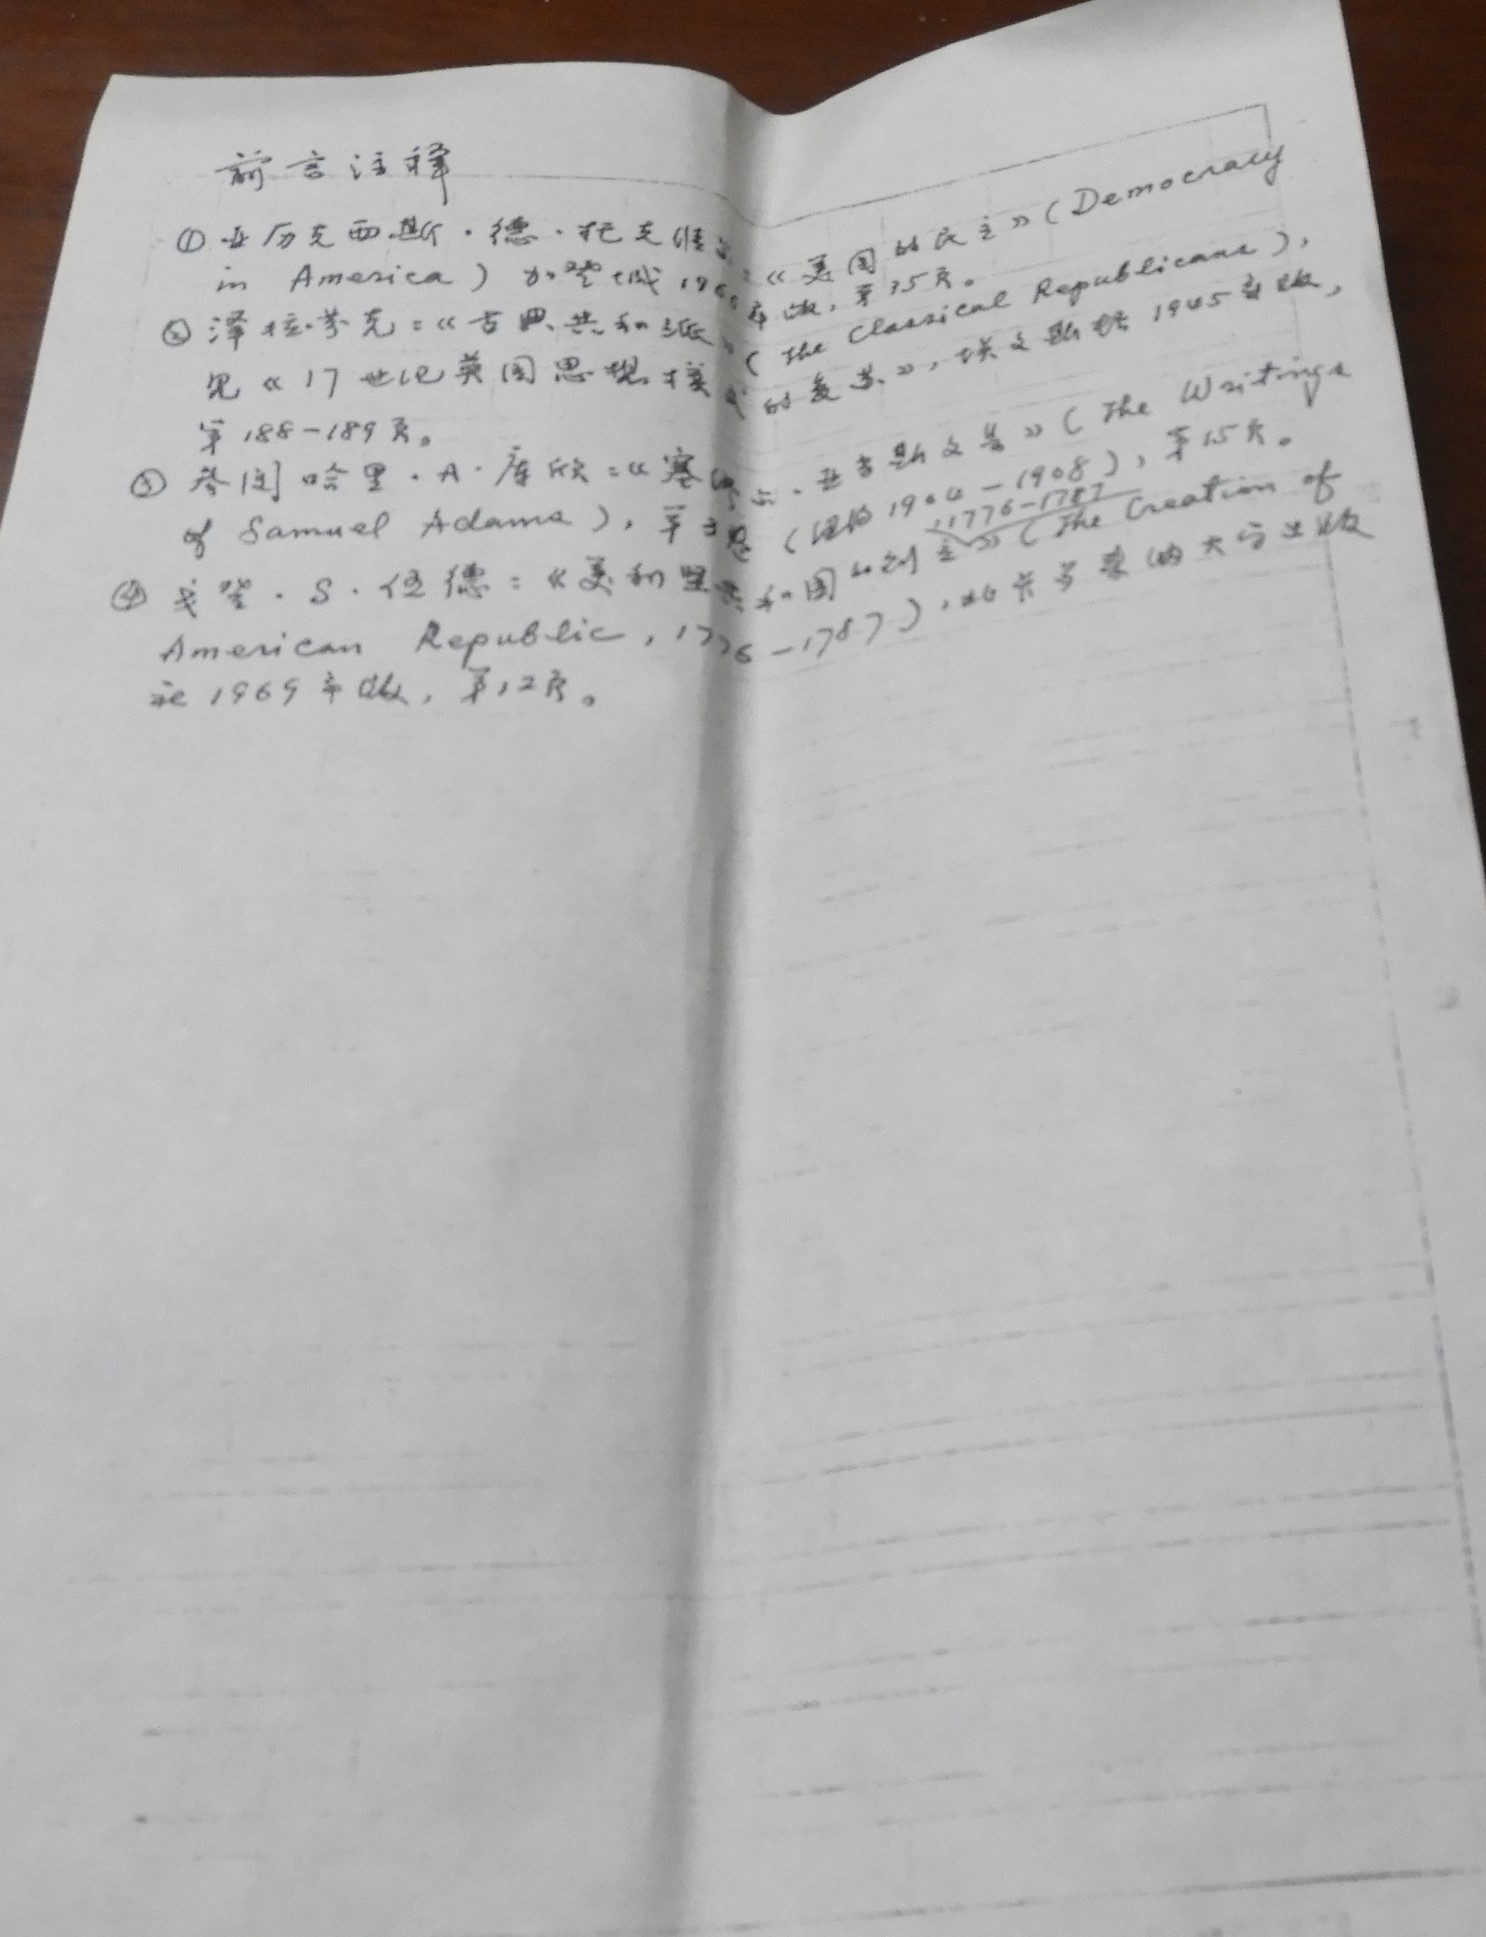 前言注释
① 亚历克西斯·德·托克维尔:《美国的民主》(Democracy
in America) 加登城 196 年版,第35页。
② 泽拉·芬克:《古典共和派》(The Classical Republicans),
见《17世纪英国思想模式的复苏》,埃文斯栋 1945年版,
第188-189页。
③ 参阅哈里·A·库欣:《塞缪尔·亚当斯文集》(The Writings
of Samuel Adams), 第3卷 (纽约 1904-1908),第15页。
④ 戈登·S·伍德:《美利坚共和国的创立,1776-1787》(The Creation of
American Republic, 1776-1787),北卡罗来纳大学出版
社 1969年版,第12页。